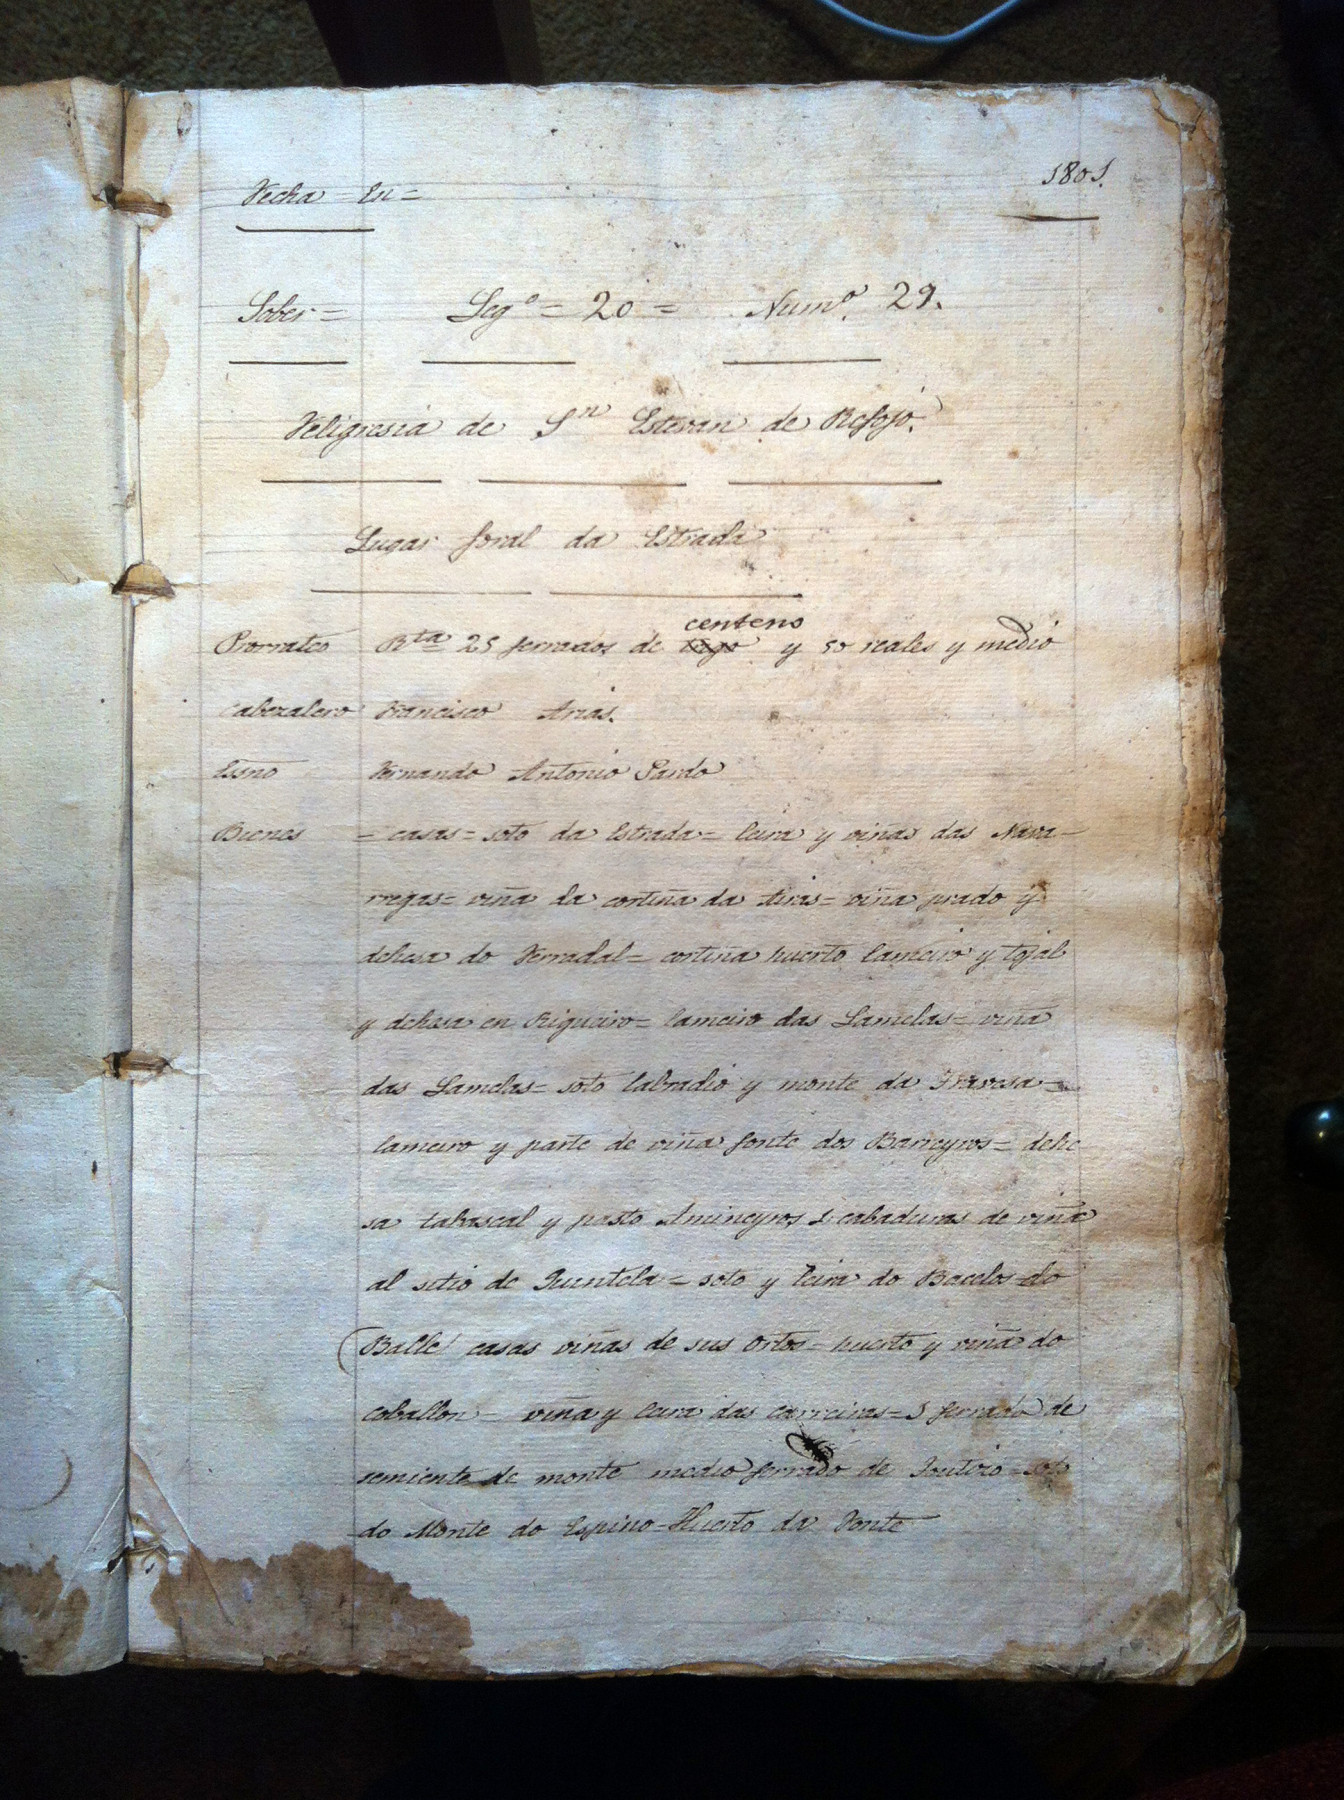 Fecha En = 1801.
Sober = Leg.º = 20 = Num.º 29.
Feligresia de S.n Estevan de Refojo.
Lugar foral da Estrada
centeno
Prorrateo R.ta 25 ferrados de trigo y 50 reales y medio
Cabezalero Francisco Arias.
Essno Fernando Antonio Pardo
Bienes = casas = soto da Estrada = leira y viñas das Nava-
rregas = viña da cortiña da Airas = viña prado y
dehesa do Ferradal = cortiña huerto lameiro y tojal
y dehesa en Rigueiro = lameiro das Lamelas = viña
das Lamelas = soto labradio y monte da Travesa =
lameiro y parte de viña fonte dos Barreyros = dehe
sa y pasto Amineyros cabaduras de viña
al sitio de Quintela = soto y leira do Bacelos do
Balle casas viñas de sus Ortos = huerto y viña do
coballon = viña y leira das Carreiras = 5 ferrado de
semiente de monte medio ferrado de = soto
do Monte do Espino = Huerto da Fonte